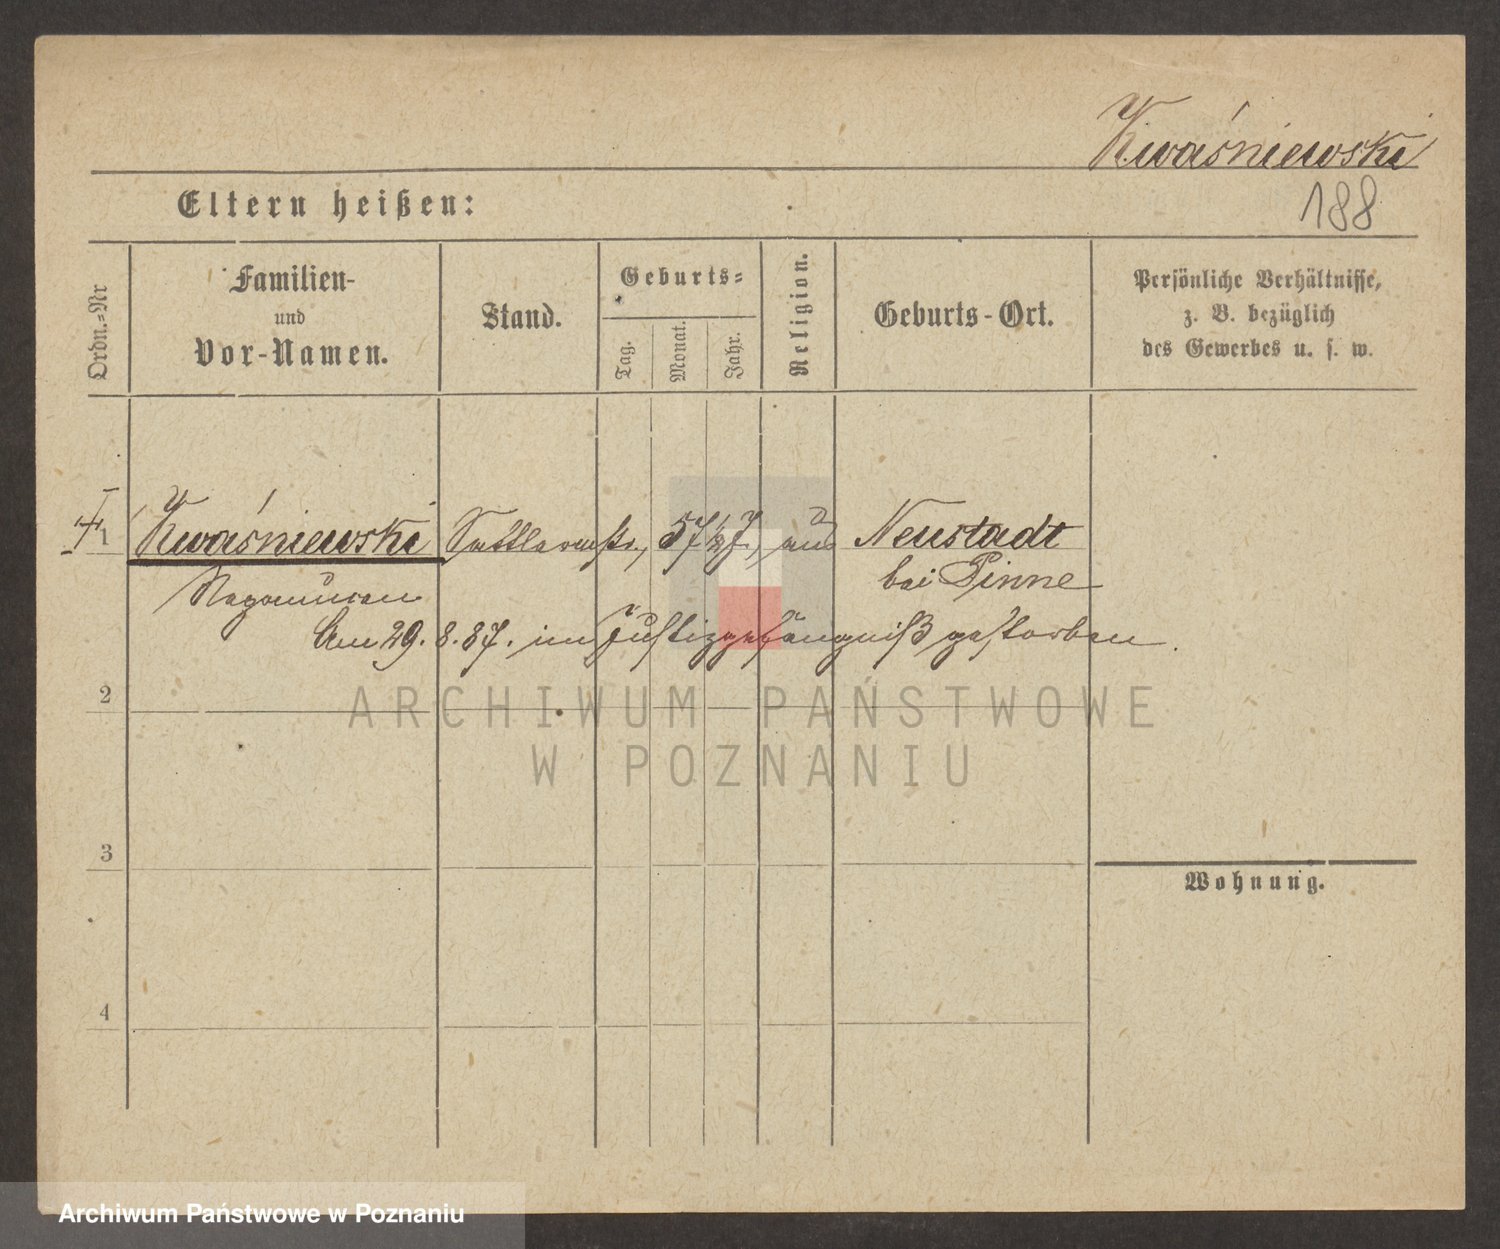 Kwaśniewski
188
Eltern heißen:
Ordn.-Nr
Familien-
und
Vor-Namen.
Stand.
Geburts-
Tag.
Monat.
Jahr.
Religion.
Geburts-Ort.
Persönliche Verhältnisse,
z. B. bezüglich
des Gewerbes u. s. w.
1 Kwaśniewski Sattlermstr., 57 aus Neustadt
Nepomucen bei Pinne
Am 29. 8. 87. im Justizgefängniß gestorben.
2
ARCHIWUM PAŃSTWOWE
W POZNANIU
3
Wohnung.
4
Archiwum Państwowe w Poznaniu